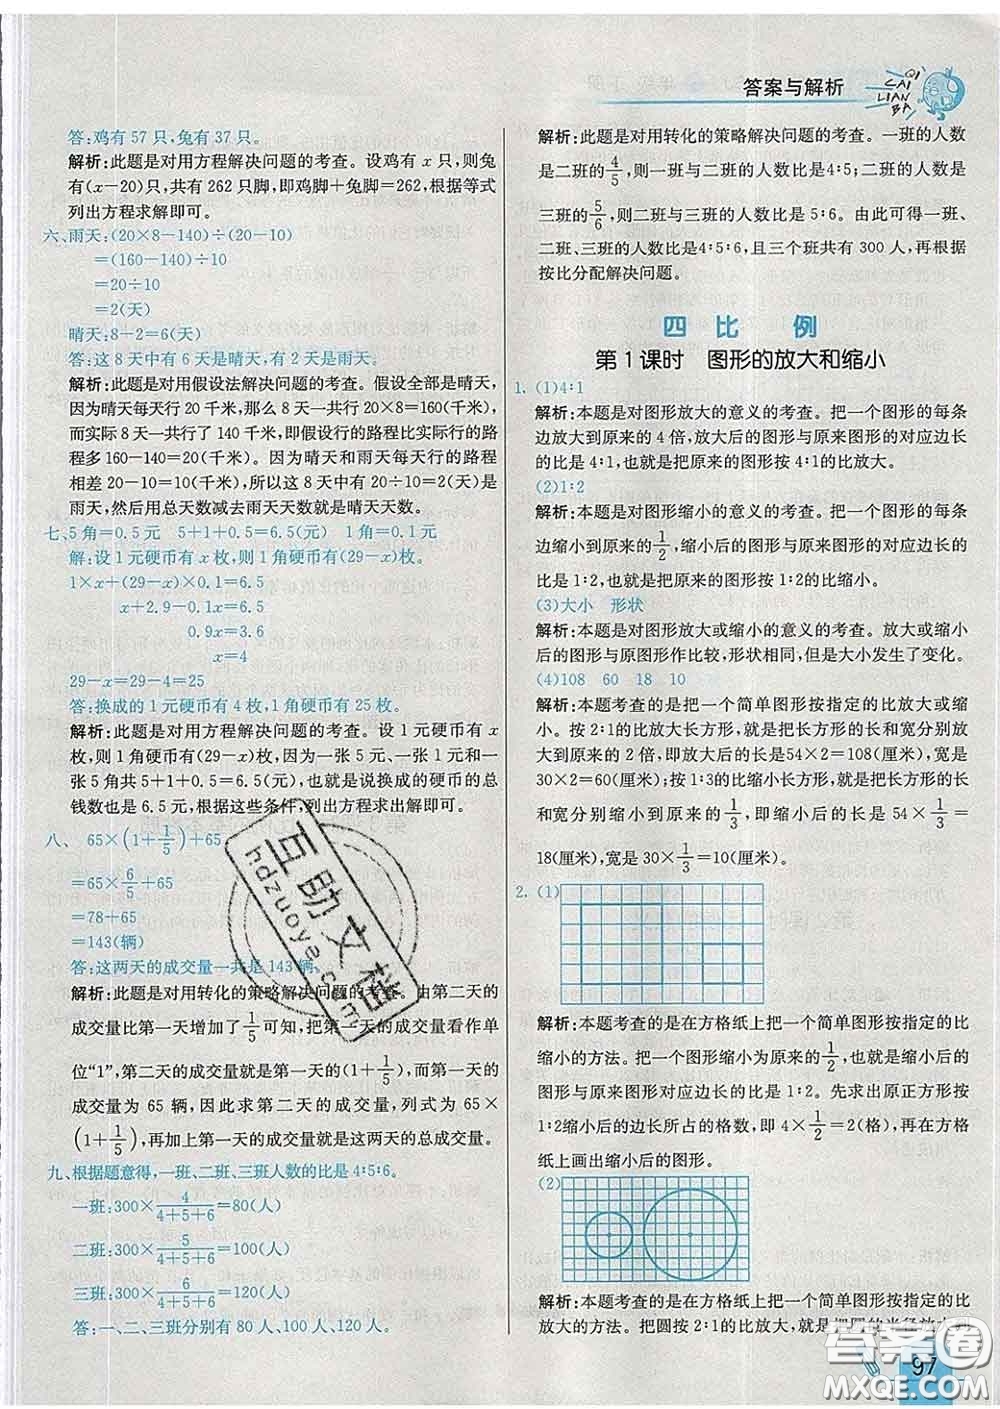 答案与解析
QI
CAI
LIAN
BA
答:鸡有 57 只,兔有 37 只。
解析:此题是对用方程解决问题的考查。设鸡有 x 只,则兔
有(x-20)只,共有 262 只脚,即鸡脚+兔脚=262,根据等式
列出方程求解即可。
六、雨天:(20×8-140)÷(20-10)
=(160-140)÷10
=20÷10
=2(天)
晴天:8-2=6(天)
答:这 8 天中有 6 天是晴天,有 2 天是雨天。
解析:此题是对用假设法解决问题的考查。假设全部是晴天,
因为晴天每天行 20 千米,那么 8 天一共行 20×8=160(千米),
而实际 8 天一共行了 140 千米,即假设行的路程比实际行的路
程多 160-140=20(千米)。因为晴天和雨天每天行的路程
相差 20-10=10(千米),所以这 8 天中有 20÷10=2(天)是
雨天,然后用总天数减去雨天天数就是晴天天数。
七、5 角=0.5 元 5+1+0.5=6.5(元) 1 角=0.1 元
解:设 1 元硬币有 x 枚,则 1 角硬币有(29-x)枚。
1×x+(29-x)×0.1=6.5
x+2.9-0.1x=6.5
0.9x=3.6
x=4
29-x=29-4=25
答:换成的 1 元硬币有 4 枚,1 角硬币有 25 枚。
解析:此题是对用方程解决问题的考查。设 1 元硬币有 x
枚,则 1 角硬币有(29-x)枚,因为一张 5 元、一张 1 元和一
张 5 角共有 6.5 元,也就是说换成的硬币的总
钱数也是 6.5 元,根据这些条件,列出方程求出解即可。
八、 65×(1+1/5)+65
=65×6/5+65
=78+65
=143(辆)
答:这两天的成交量一共是 143 辆。
解析:此题是对用转化的策略解决问题的考查。由第二天的
成交量比第一天增加了 1/5 可知,把第一天的成交量看作单
位“1”,第二天的成交量就是第一天的(1+1/5),而第一天的
成交量为 65 辆,因此求第二天的成交量,列式为 65×
(1+1/5),再加上第一天的成交量就是这两天的总成交量。
九、根据题意得,一班、二班、三班人数的比是 4:5:6。
一班:300×4/(4+5+6)=80(人)
二班:300×5/(4+5+6)=100(人)
三班:300×6/(4+5+6)=120(人)
答:一、二、三班分别有 80 人、100 人、120 人。
解析:此题是对用转化的策略解决问题的考查。一班的人数
是二班的 4/5,则一班与二班的人数比是 4:5;二班的人数是
三班的 5/6,则二班与三班的人数比是 5:6。由此可得一班、
二班、三班的人数比是 4:5:6,且三个班共有 300 人,再根据
按比分配解决问题。
四 比 例
第 1 课时 图形的放大和缩小
1. (1)4:1
解析:本题是对图形放大的意义的考查。把一个图形的每条
边放大到原来的 4 倍,放大后的图形与原来图形的对应边长
的比是 4:1,也就是把原来的图形按 4:1的比放大。
(2)1:2
解析:本题是对图形缩小的意义的考查。把一个图形的每条
边缩小到原来的 1/2,缩小后的图形与原来图形的对应边长的
比是 1:2,也就是把原来的图形按 1:2的比缩小。
(3)大小 形状
解析:本题是对图形放大或缩小的意义的考查。放大或缩小
后的图形与原图形作比较,形状相同,但大小发生了变化。
(4)108 60 18 10
解析:本题考查的是把一个简单图形按指定的比放大或缩
小。按 2:1的比放大长方形,就是把长方形的长和宽分别放
大到原来的 2 倍,即放大后的长是54×2=108(厘米),宽是
30×2=60(厘米);按 1:3的比缩小长方形,就是把长方形的长
和宽分别缩小到原来的 1/3,即缩小后的长是 54×1/3=
18(厘米),宽是 30×1/3=10(厘米)。
2. (1)
解析:本题考查的是在方格纸上把一个简单图形按指定的比
缩小的方法。把一个图形缩小为原来的 1/2,也就是缩小后的
图形与原来图形对应边长的比是 1:2。先求出原正方形按
1:2缩小后的边长所占的格数,即 4×1/2=2(格),再在方格
纸上画出缩小后的图形。
(2)
解析:本题考查的是在方格纸上把一个简单图形按指定的比
放大的方法。把圆按 2:1的比放大,就是把圆的半径放大到
97
互助文档
hdzuoye.com
答案圈
MXQE.COM